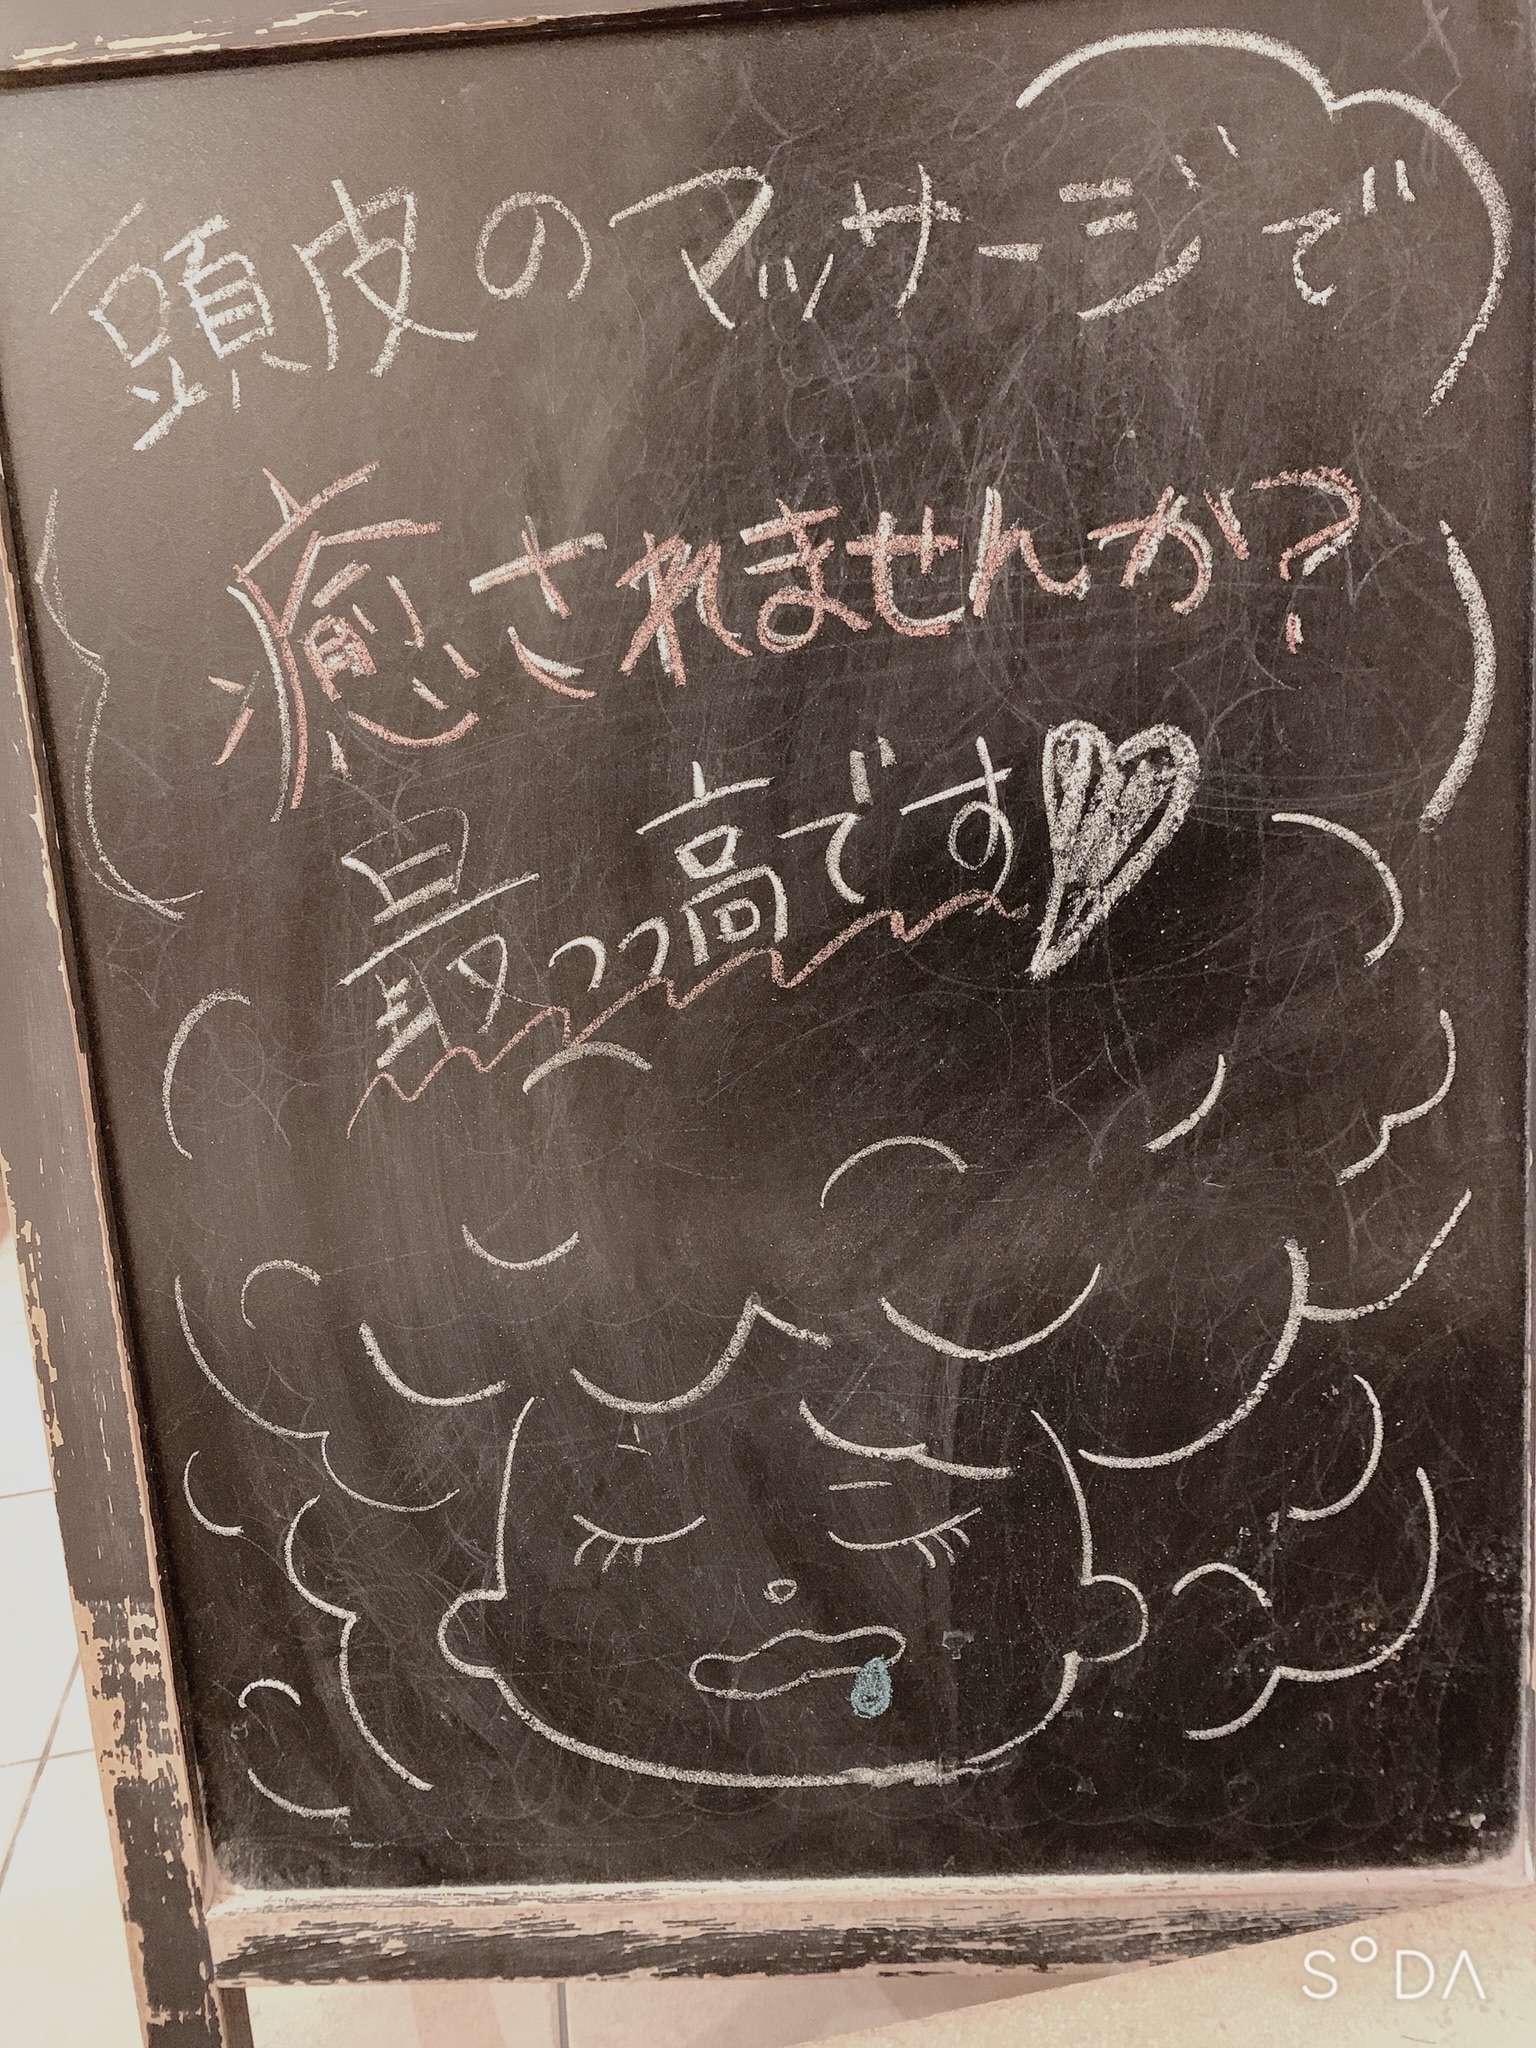 頭皮のマッサージで
癒されませんか?
最っっ高です♥
SODA